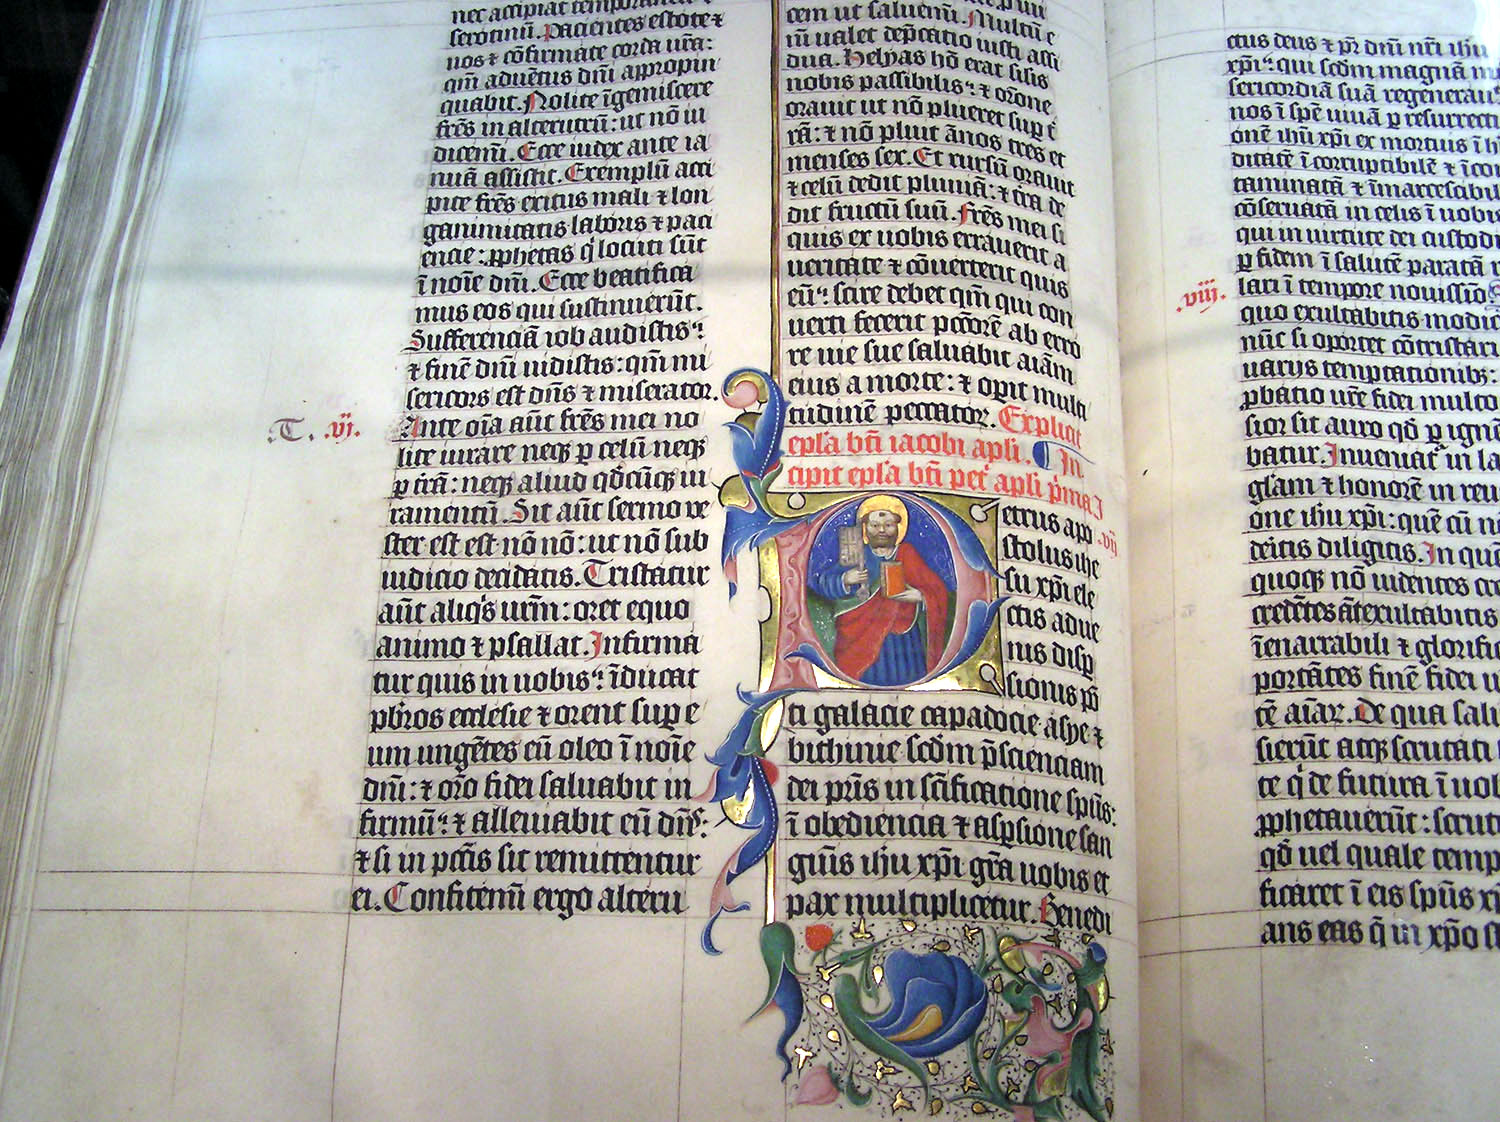 nec accipiat temporaneū ⁊
serotinū. Pacientes estote ⁊
uos ⁊ cōfirmate corda ur̄a:
qm̄ aduētus dn̄i appropin
quabit. Nolite īgemiscere
fr̄es in alterutrū: ut nō iu
dicemī. Ecce iudex ante ia
nuā assistit. Exemplū acci
pite fr̄es exitus mali ⁊ lon
ganimitatis laboris ⁊ paci
encie: ꝓphetas q̇ locuti sūt
ī noīe dn̄i. Ecce beatifica
mus eos qui sustinuerūt.
Sufferenciā iob audistis:
⁊ finē dn̄i uidistis: qm̄ mi
sericors est dn̄s ⁊ miserator.
.T. .vj.
Ante oīa aūt fr̄es mei no
lite iurare neqꝫ ꝑ celū neqꝫ
ꝑ t̄rā: neqꝫ aliud qd̄cūqꝫ iu
ramentū. Sit aūt sermo ve
ster est est nō nō: ut nō sub
iudicio decidatis. Tristatur
aūt aliq̇s urm̄: oret equo
animo ⁊ psallat. Infirma
tur quis in uobis: īducat
pb̄ros ecclesie ⁊ orent suꝑ e
um ungētes eū oleo ī noīe
dn̄i: ⁊ orō fidei saluabit in
firmū: ⁊ alleuiabit eū dn̄s:
⁊ si in pctīs sit remittentur
ei. Confitemī ergo alteru
cem ut saluemī. Multū e
nī ualet dep̄catio iusti assi
dua. Helyas hō erat silis
nobis passibilis: ⁊ orōne
orauit ut nō plueret suꝑ t̄
rā: ⁊ nō pluit ānos tres et
menses sex. Et rursū orauit
⁊ celū dedit pluuiā: ⁊ t̄ra de
dit fructū suū. Fr̄es mei si
quis ex uobis errauerit a
ueritate ⁊ cōuerterit quis
eū: scire debet qm̄ qui con
uerti fecerit pctōrē ab erro
re uie sue saluabit aīam
eius a morte: ⁊ oꝑit multi
tudinē peccatoꝝ. Explicit
epl̄a bt̄i iacobi apl̄i. In
cipit epl̄a bt̄i pet̄ apl̄i p̄ma I
Petrus apo .vij
stolus ihe
su xp̄i ele
ctis adue
nis disꝑ
sionis pō
ti galacie capadocie asye ⁊
bithinie scd̄m p̄scienciam
dei pr̄is in sc̄ificatione sp̄us:
ī obediencia ⁊ asꝑsione san
guīs ih̄u xp̄i gr̄a uobis et
pax multiplicetur. Benedi
ctus deus ⁊ pr̄ dn̄i nr̄i ih̄u
xp̄i: qui scd̄m magnā mi
sericordiā suā regenerauit
nos ī spē uiuā ꝑ resurrecti
onē ih̄u xp̄i ex mortuis ī h
ditatē ī corruptibilē ⁊ īcon
taminatā ⁊ īmarcescibil
cōseruatā in celis ī uobis
qui in uirtute dei custodi
ꝑ fidem ī salutē paratā r
.viij. lari ī tempore nouissīo
quo exultabitis modic
nūc si oportet cōtristari
uarijs temptationibꝫ:
ꝓbatio ur̄e fidei multo
sior sit auro qd̄ ꝑ ignē
batur. Inueniat̄ in la
glām ⁊ honorē in reu
one ih̄u xp̄i: quē cū n
deītis diligitis. In quē
quoqꝫ nō uidentes cre
credētes āt exultabitis
īenarrabili ⁊ glorific
portātes finē fidei u
tē aīaꝝ. De qua sali
sierūt atqꝫ scrutati
te q̇ de futura ī uob
ꝓphetauerūt: scrut
qd̄ uel quale temp
ficaret ī eis sp̄us xp̄
ans eas q̄ in xp̄o s